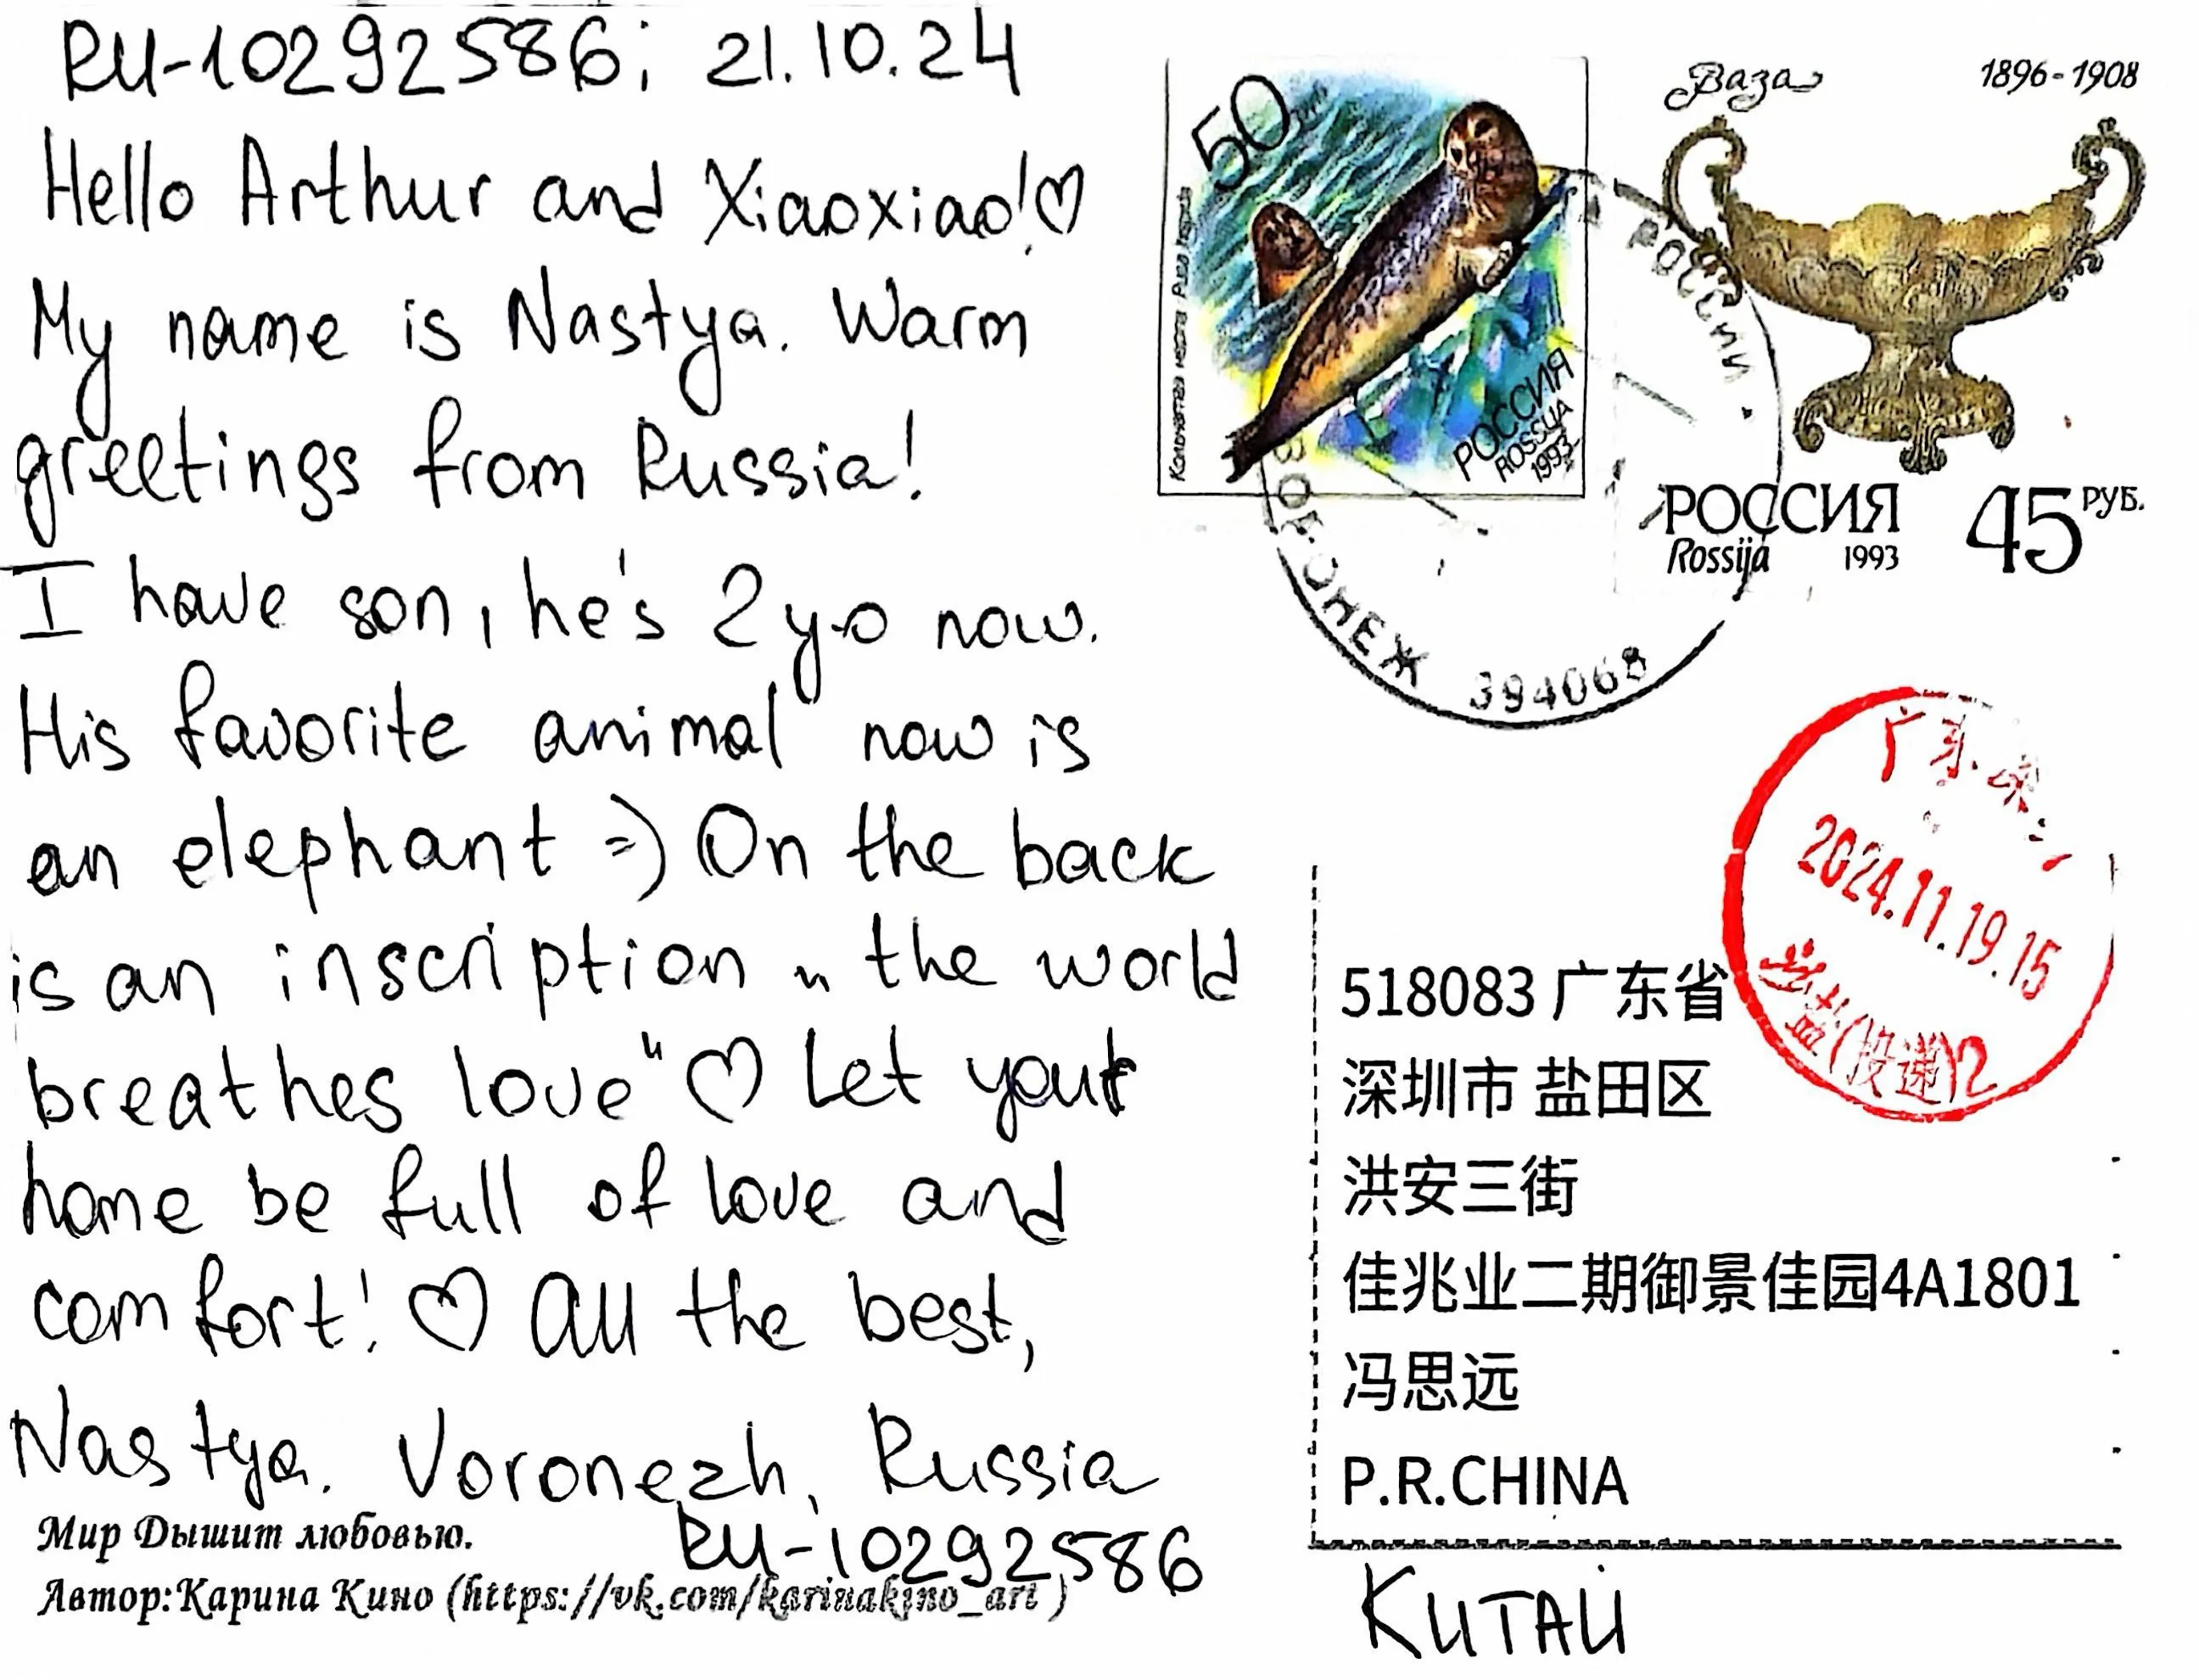 RU-10292586; 21.10.24
Hello Arthur and Xiaoxiao!♡
My name is Nastya. Warm
greetings from Russia!
I have son, he's 2 y.o now.
His favorite animal now is
an elephant =) On the back
is an inscription „ the world
breathes love" ♡ Let your
home be full of love and
comfort! ♡ All the best,
Nastya. Voronezh, Russia
RU-10292586
Мир Дышит любовью.
Автор:Карина Кино (https://vk.com/karinakino_art )
50
РОССИЯ
ROSSIJA
1993
Ваза 1896-1908
РОССИЯ 45 РУБ.
Rossija 1993
РОССИИ
394068
广东
2024.11.19.15
盐(投递)2
518083 广东省
深圳市 盐田区
洪安三街
佳兆业二期御景佳园4A1801
冯思远
P.R.CHINA
КИТАЙ